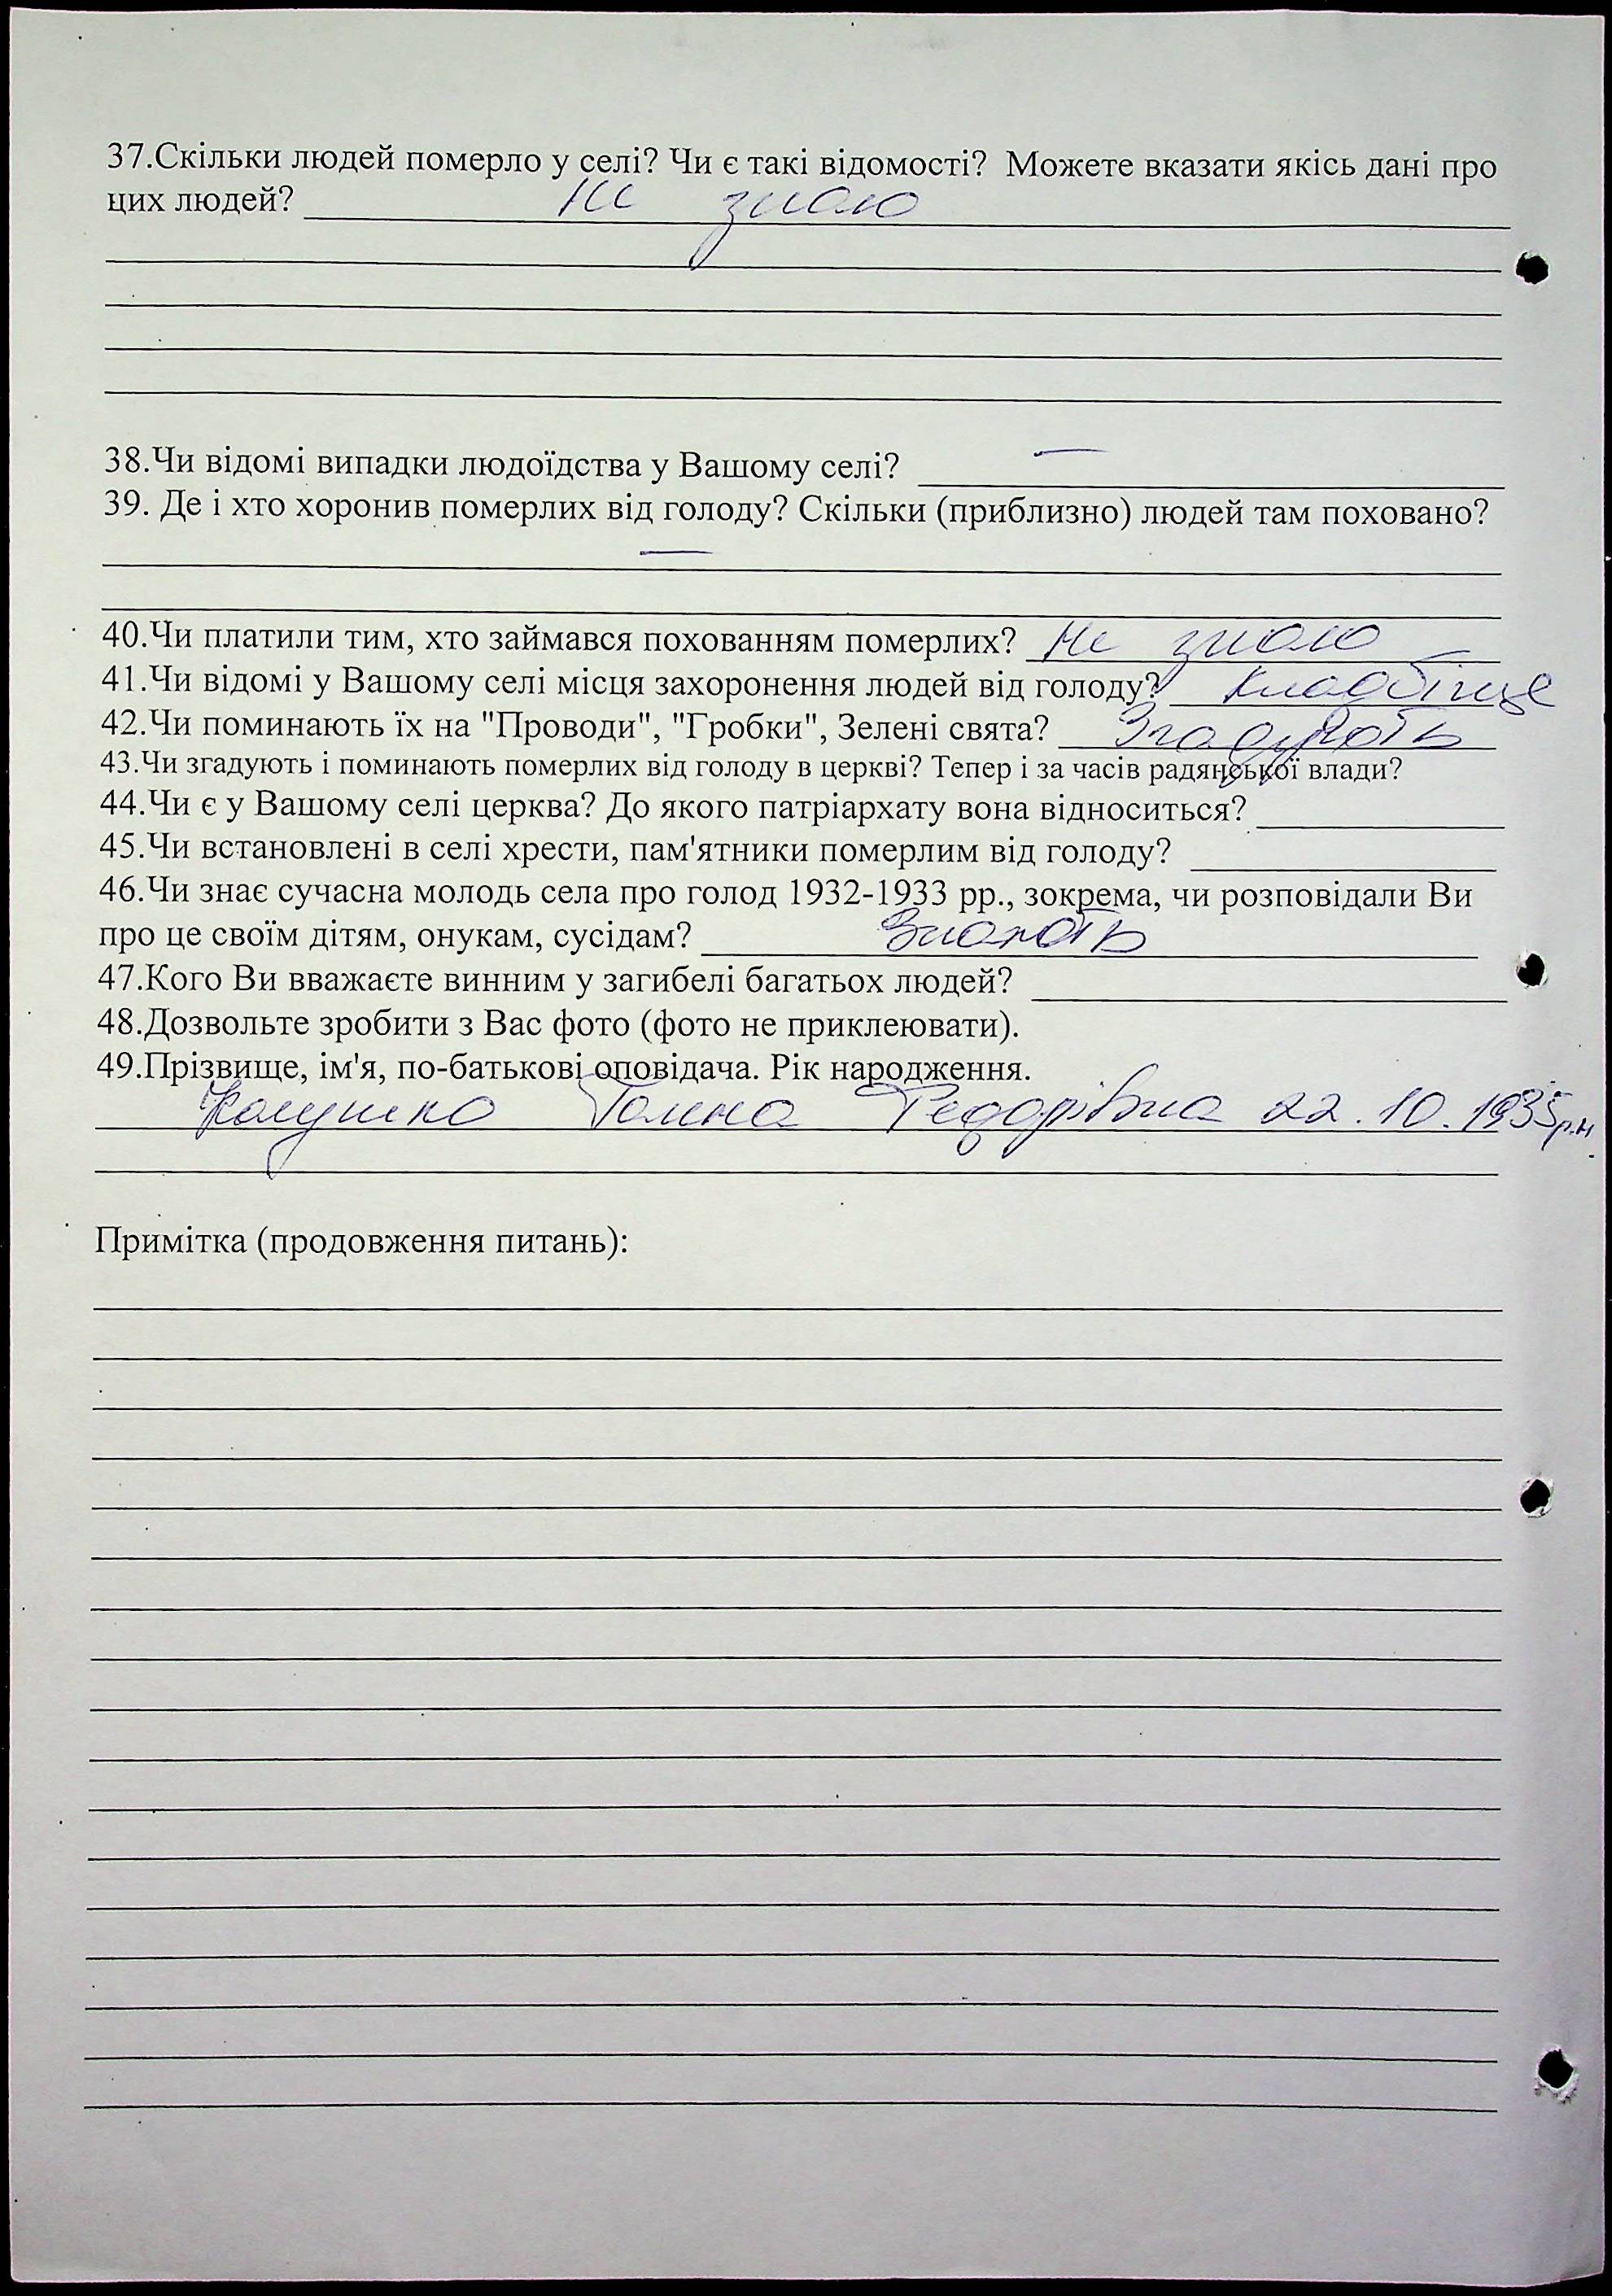 37.Скільки людей померло у селі? Чи є такі відомості? Можете вказати якісь дані про
цих людей? Не знаю
38.Чи відомі випадки людоїдства у Вашому селі? —
39. Де і хто хоронив померлих від голоду? Скільки (приблизно) людей там поховано?
—
40.Чи платили тим, хто займався похованням померлих? Не знаю
41.Чи відомі у Вашому селі місця захоронення людей від голоду? кладбіще
42.Чи поминають їх на "Проводи", "Гробки", Зелені свята? Згадують
43.Чи згадують і поминають померлих від голоду в церкві? Тепер і за часів радянської влади?
44.Чи є у Вашому селі церква? До якого патріархату вона відноситься?
45.Чи встановлені в селі хрести, пам'ятники померлим від голоду?
46.Чи знає сучасна молодь села про голод 1932-1933 рр., зокрема, чи розповідали Ви
про це своїм дітям, онукам, сусідам? Знають
47.Кого Ви вважаєте винним у загибелі багатьох людей?
48.Дозвольте зробити з Вас фото (фото не приклеювати).
49.Прізвище, ім'я, по-батькові оповідача. Рік народження.
Галина Федорівна 22.10.1935р.н.
Примітка (продовження питань):